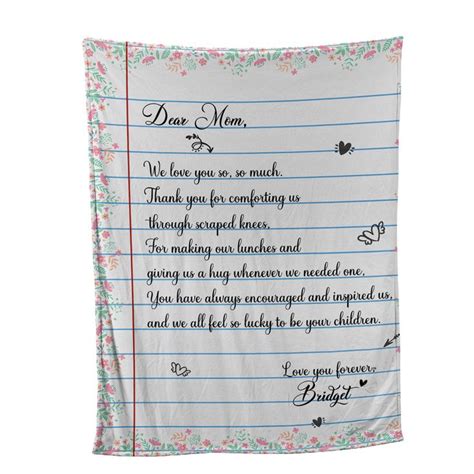 Dear Mom,
We love you so, so much.
Thank you for comforting us
through scraped knees,
For making our lunches and
giving us a hug whenever we needed one,
You have always encouraged and inspired us,
and we all feel so lucky to be your children.
Love you forever,
Bridget